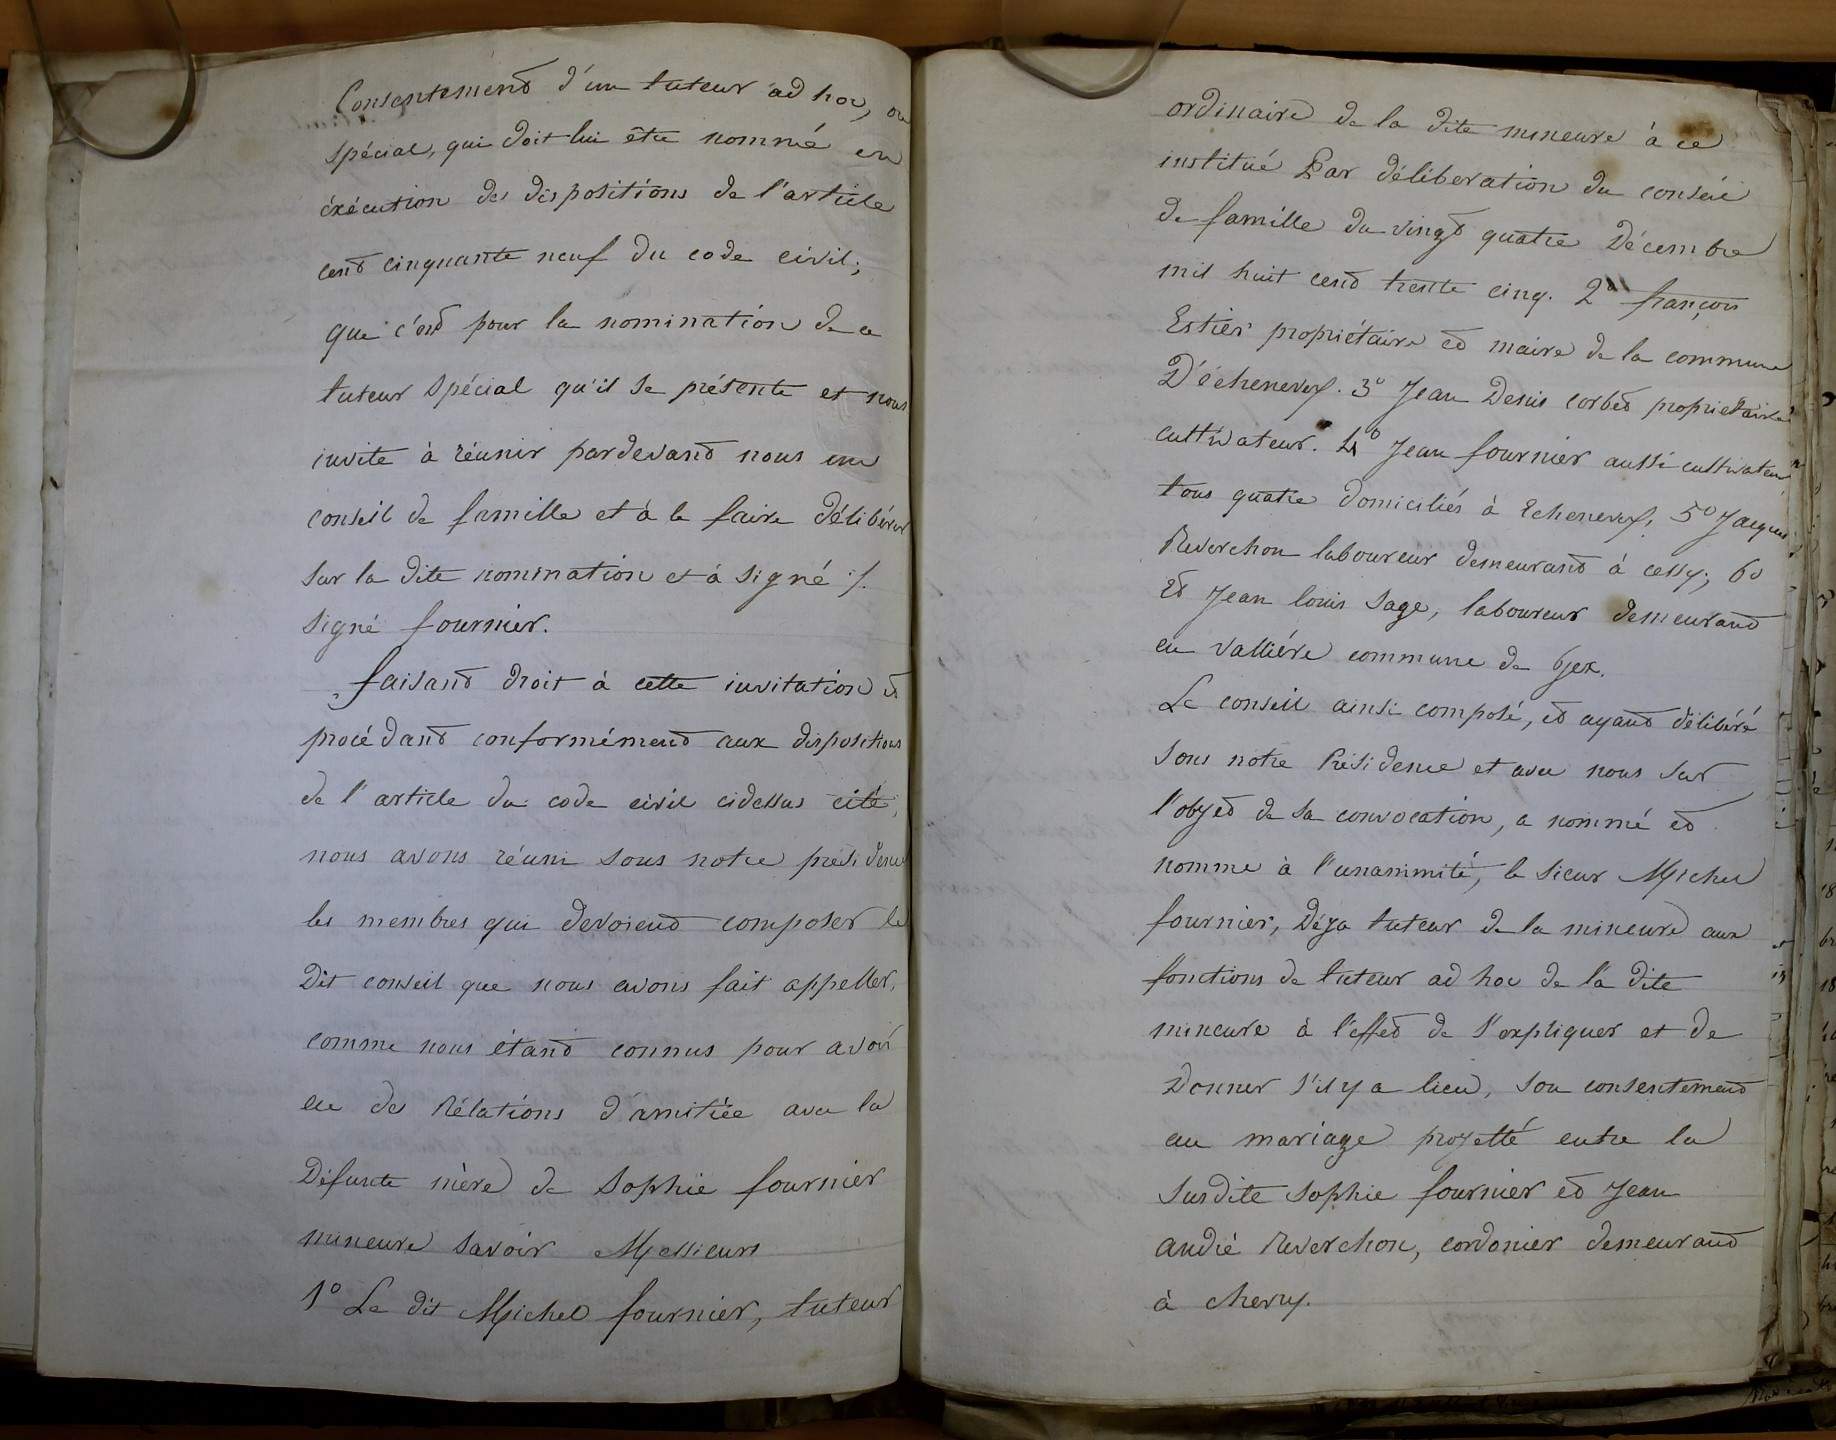 Consentement d'un tuteur ad hoc, ou
spécial, qui doit lui être nommé en
éxécution des dispositions de l'article
cent cinquante neuf du code civil;
que c'est pour la nomination de ce
tuteur spécial qu'il se présente et nous
invite à réunir pardevant nous un
conseil de famille et à le faire délibérer
sur la dite nomination et à signé ./.
signé fournier.
faisant droit à cette invitation et
procédant conformément aux dispositions
de l'article du code civil cidessus cité,
nous avons réuni sous notre présidence
les membres qui devoient composer le
dit conseil que nous avons fait appeller,
comme nous étant connus pour avoir
eu des rélations d'amitiée avec la
Défunte mère de Sophie fournier
mineure savoir Messieurs
1° Le dit Michel fournier, tuteur
ordinaire de la dite mineure à ce
institué Par déliberation du conseil
de famille du vingt quatre Décembre
mil huit cent trente cinq. 2° françois
Estier propriétaire et maire de la commune
D'échenevex. 3° Jean Denis corbet propriétaire
cultivateur. 4° Jean fournier aussi cultivateur
tous quatre domiciliés à Echenevex, 5° Jacques
Reverchon laboureur demeurant à cessy; 6°
Et Jean louis Sage, laboureur demeurant
en Vallière commune de Gex.
Le conseil ainsi composé, et ayant délibéré
sous notre Présidence et avec nous sur
l'objet de sa convocation, a nommé et
nomme à l'unanimité, le sieur Michel
fournier, Déja tuteur de la mineure aux
fonctions de tuteur ad hoc de la dite
mineure à l'effet de s'expliquer et de
Donner s'il y a lieu, son consentement
au mariage projetté entre la
susdite Sophie fournier et Jean
andré Reverchon, cordonier demeurant
à chevry.